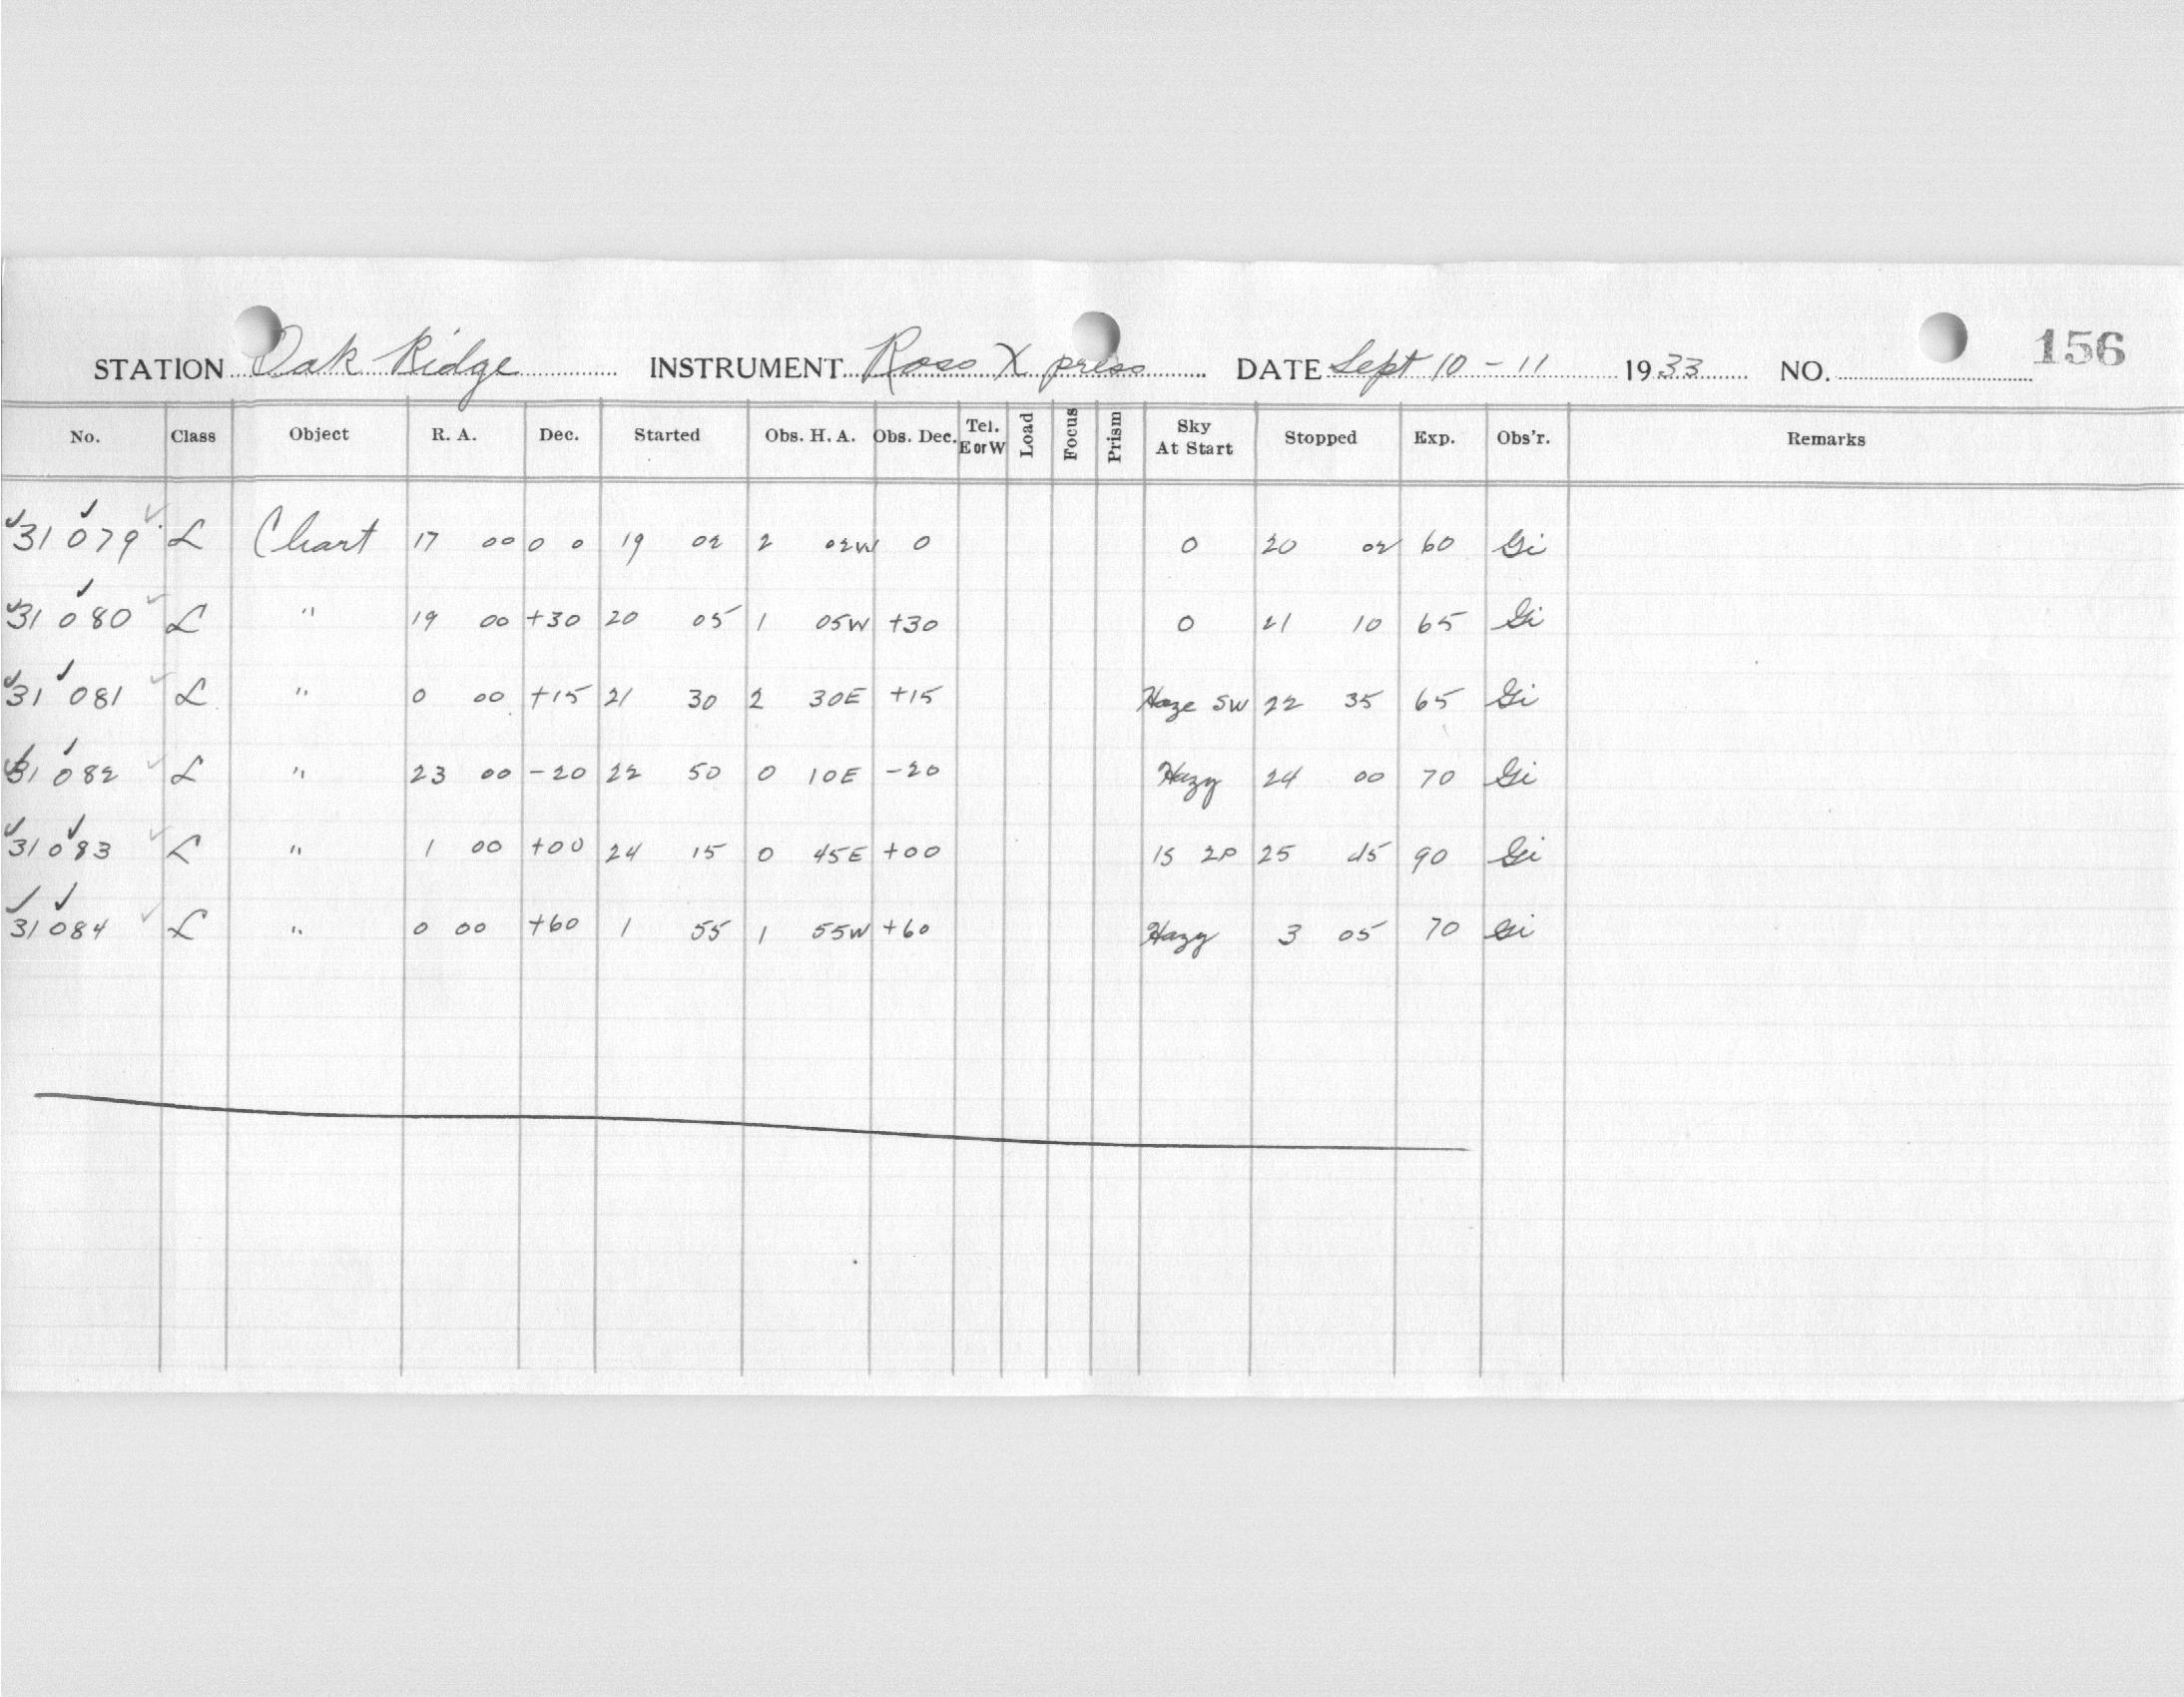 156
STATION Oak Ridge INSTRUMENT Ross X press DATE Sept 10 - 11 1933 NO.
No. Class Object R. A. Dec. Started Obs. H. A. Obs. Dec. Tel. E or W Load Focus Prism Sky At Start Stopped Exp. Obs'r. Remarks
31079 L Chart 17 00 0 0 19 02 2 02W 0 0 20 02 60 Gi
31080 L " 19 00 +30 20 05 1 05W +30 0 21 10 65 Gi
31081 L " 0 00 +15 21 30 2 30E +15 Haze SW 22 35 65 Gi
31082 L " 23 00 -20 22 50 0 10E -20 Hazy 24 00 70 Gi
31083 L " 1 00 +00 24 15 0 45E +00 1S 2P 25 45 90 Gi
31084 L " 0 00 +60 1 55 1 55W +60 Hazy 3 05 70 Gi